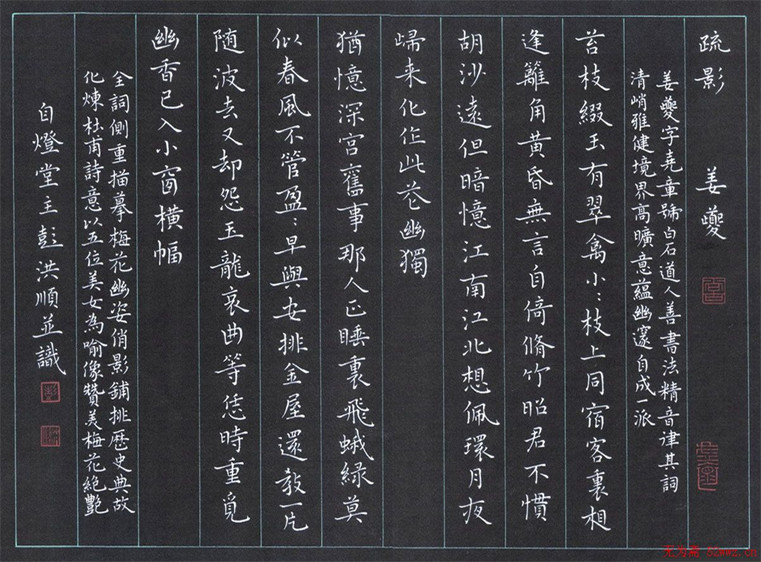 疏影　姜夔
姜夔字堯章號白石道人善書法精音律其詞
清峭雅健境界高曠意蘊幽邃自成一派
苔枝綴玉有翠禽小小枝上同宿客裏相
逢籬角黃昏無言自倚脩竹昭君不慣
胡沙遠但暗憶江南江北想佩環月夜
歸来化作此花幽獨
猶憶深宮舊事那人正睡裏飛蛾綠莫
似春風不管盈盈早與安排金屋還教一片
随波去又却怨玉龍哀曲等恁時重覓
幽香已入小窗橫幅
全詞側重描摹梅花幽姿俏影鋪排歷史典故
化煉杜甫詩意以五位美女為喻像贊美梅花絕艷
自燈堂主彭洪順並識